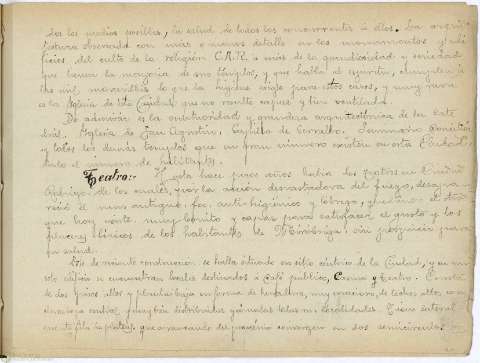 dos los medios posibles, la salud de todos los concurrentes á ellos. La arqui-
tectura observada con mas ó menos detalle en los monumentos y edi-
ficios del culto de la religión C.A.R. á mas de la grandiosidad y seriedad
que tienen la mayoria de sus templos, y que habla al espiritu, cumplen á
las mil maravillas lo que la higiene exige para estos casos, y muy rara
es la Iglesia de esta Ciudad que no resulte capaz y bien ventilada.
De admirar es la suntuosidad y grandeza arquitectónica de la Cate
dral, Iglesia de San Agustin, Capilla de Cerralbo, Seminario Conciliar
y todos los demás templos que en gran número existen en esta Ciudad,
dado el número de habitantes.
Teatro:- Hasta hace pocos años habia dos teatros en Ciudad
Rodrigo de los cuales, por la acción devastadora del fuego, desapa-
reció el mas antiguo, feo, anti-higiénico y lóbrego, quedando el otro
que hoy existe muy bonito y capaz para satisfacer el gusto y los
placeres líricos de los habitantes de Miróbriga, sin perjuicio para
su salud.
Es de reciente construcción, se halla situado en sitio céntrico de la Ciudad, y en su
edificio se encuentran locales dedicados á Café público, Casino y Teatro. Consta
de dos pisos altos y planta baja en forma de herradura, muy espacioso, de techo alto, con
central, muy bien distribuidas y cómodas todas sus localidades. Tiene
puertas, que arrancando del proscenio convergen en dos semicirculos